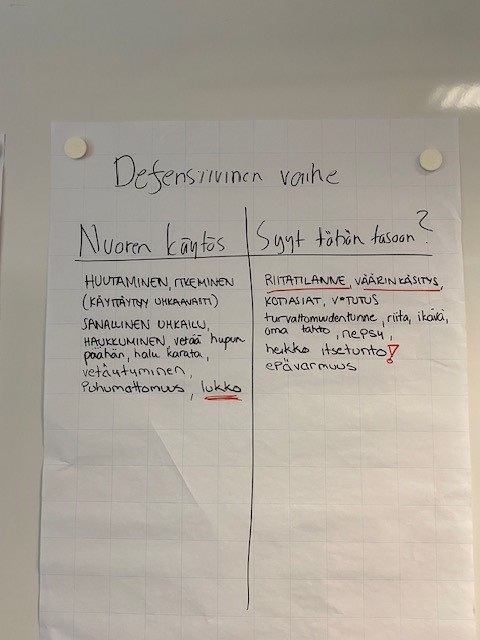 Defensiivinen vaihe
Nuoren käytös
HUUTAMINEN, ITKEMINEN
(KÄYTTÄYTYY UHKAAVASTI)
SANALLINEN UHKAILU,
HAUKKUMINEN, vetää hupun
päähän, halu karata,
vetäytyminen,
Puhumattomuus, lukko
Syyt tähän tasoon?
RIITATILANNE, VÄÄRINKÄSITYS,
KOTIASIAT, V*TUTUS
turvattomuudentunne, riita, ikävä,
oma tahto, nepsy,
heikko itsetunto!
epävarmuus